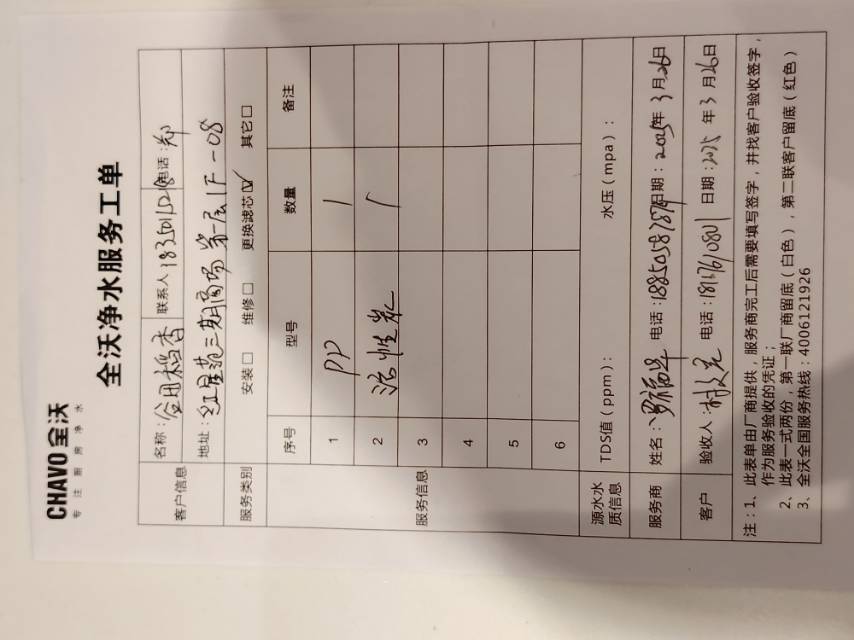 CHAVO 全沃
专 注 厨 房 净 水
全沃净水服务工单
客户信息
名称：谷田稻香 联系人 电话：郑
地址：红星苑三期商场第一层1F-08
服务类别 安装□ 维修□ 更换滤芯☑ 其它□
服务信息
序号 型号 数量 备注
1 PP 1
2 活性炭 1
3
4
5
6
源水水质信息 TDS值（ppm）： 水压（mpa）：
服务商 姓名： 电话：18850587874 日期：2025年3月26日
客户 验收人： 电话：18136710801 日期：2025年3月26日
注：1、此表单由厂商提供，服务商完工后需要填写签字，并找客户验收签字，
作为服务验收的凭证；
2、此表一式两份，第一联厂商留底（白色），第二联客户留底（红色）
3、全沃全国服务热线：4006121926